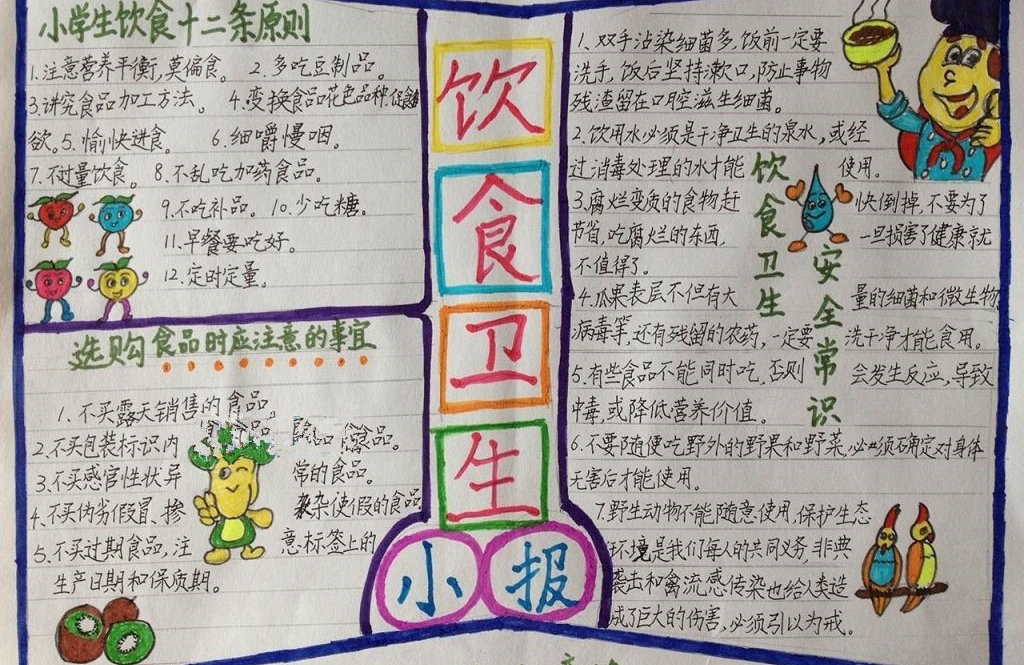 小学生饮食十二条原则
1.注意营养平衡,莫偏食。 2.多吃豆制品。
3.讲究食品加工方法。 4.变换食品花色品种,促食
欲。5.愉快进食。 6.细嚼慢咽。
7.不过量饮食。 8.不乱吃加药食品。
9.不吃补品。 10.少吃糖。
11.早餐要吃好。
12.定时定量。
选购食品时应注意的事宜
1.不买露天销售的食品。
2.不买包装标识内 食品。
3.不买感官性状异 常的食品。
4.不买伪劣假冒、掺 杂使假的食品
5.不买过期食品,注 意标签上的
生产日期和保质期。
饮
食
卫
生
小报
饮食卫生
安全常识
1、双手沾染细菌多,饭前一定要
洗手,饭后坚持漱口,防止事物
残渣留在口腔滋生细菌。
2.饮用水必须是干净卫生的泉水,或经
过消毒处理的水才能 使用。
3.腐烂变质的食物赶 快倒掉,不要为了
节省,吃腐烂的东西, 一旦损害了健康就
不值得了。
4.瓜果表层不但有大 量的细菌和微生物
病毒等,还有残留的农药,一定要 洗干净才能食用。
5.有些食品不能同时吃,否则 会发生反应,导致
中毒或降低营养价值。
6.不要随便吃野外的野果和野菜,必须确定对身体
无害后才能使用。
7.野生动物不能随意使用,保护生态
环境是我们每人的共同义务,非典
袭击和禽流感传染也给人类造
成了巨大的伤害,必须引以为戒。